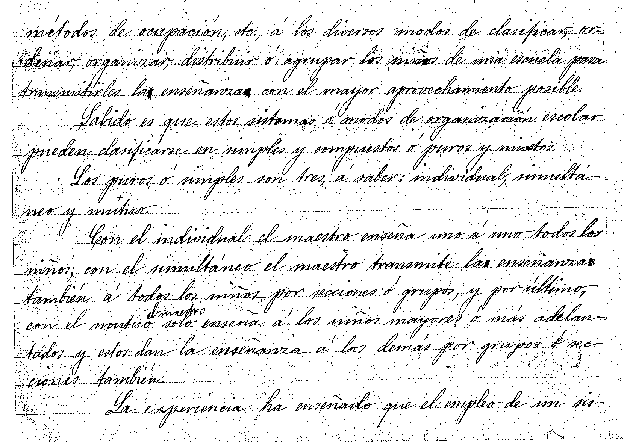 metodos de ocupación, etc, á los diversos modos de clasificar, or-
denar, organizar, distribuir ó agrupar los niños de una escuela para
transmitirles la enseñanza con el mayor aprovechamiento posible.
Sabido es que estos sistemas ó modos de organización escolar
pueden clasificarse en simples y compuestos ó puros y mixtos.
Los puros ó simples son tres, á saber: individual, simultá-
neo y mutuo.
Con el individual el maestro enseña uno á uno todos los
niños, con el simultaneo el maestro transmite la enseñanza
también á todos los niños por secciones ó grupos, y por último,
con el mutuo el maestro solo enseña á los niños mayores ó mas adelan-
tados y estos dan la enseñanza á los demás por grupos ó sec-
ciones también.
La experiencia ha enseñado que el empleo de un sis-